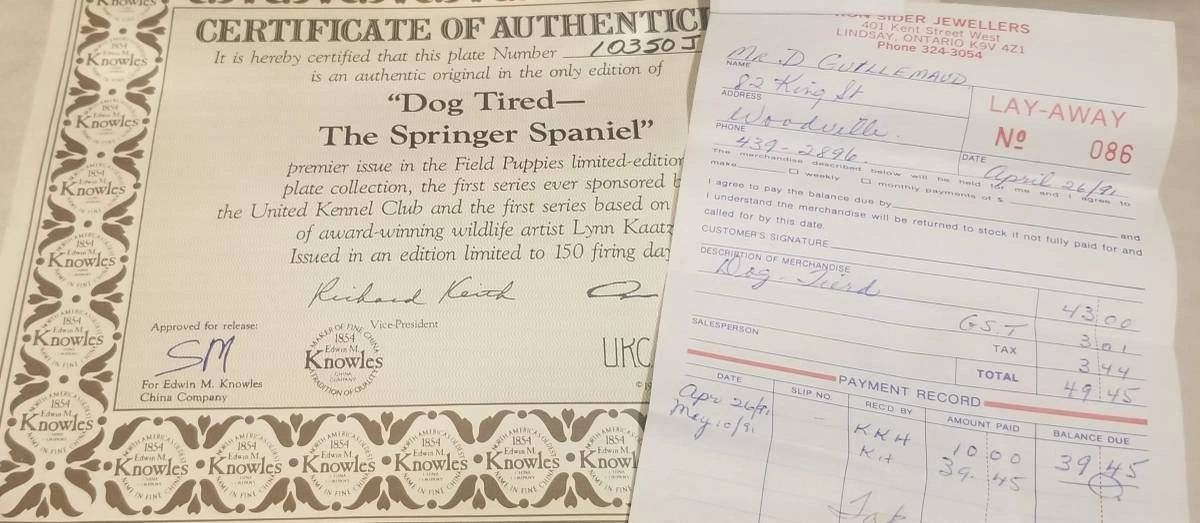 CERTIFICATE OF AUTHENTICI
It is hereby certified that this plate Number 10350J
is an authentic original in the only edition of
“Dog Tired—
The Springer Spaniel”
premier issue in the Field Puppies limited-edition
plate collection, the first series ever sponsored b
the United Kennel Club and the first series based on
of award-winning wildlife artist Lynn Kaatz
Issued in an edition limited to 150 firing day
Richard Keith
Vice-President
Approved for release:
SM
For Edwin M. Knowles
China Company
MAKER OF FINE CHINA
1854
Edwin M.
Knowles
CHINA
COMPANY
TRADITION OF QUALITY
UKC
©19
1854
Edwin M.
Knowles
1854
Edwin M.
Knowles
1854
Edwin M.
Knowles
1854
Edwin M.
Knowles
1854
Edwin M.
Knowles
1854
Edwin M.
Knowles
SIDER JEWELLERS
401 Kent Street West
LINDSAY, ONTARIO K9V 4Z1
Phone 324-3054
Mr. D Guillemaud
NAME
82 King St
ADDRESS
Woodville.
PHONE
439-2896.
LAY-AWAY
Nº 086
DATE April 26/91
The merchandise described below will be held for me and I agree to
make □ weekly □ monthly payments of $
I agree to pay the balance due by and
I understand the merchandise will be returned to stock if not fully paid for and
called for by this date.
CUSTOMER'S SIGNATURE
DESCRIPTION OF MERCHANDISE
Dog-Tierd 43 00
G.S.T 3 01
SALESPERSON
TAX 3 44
TOTAL 49 45
PAYMENT RECORD
DATE SLIP NO. REC'D BY AMOUNT PAID BALANCE DUE
Apr 26/91 - KKH 10 00 39 45
May 10/91 KH 39. 45